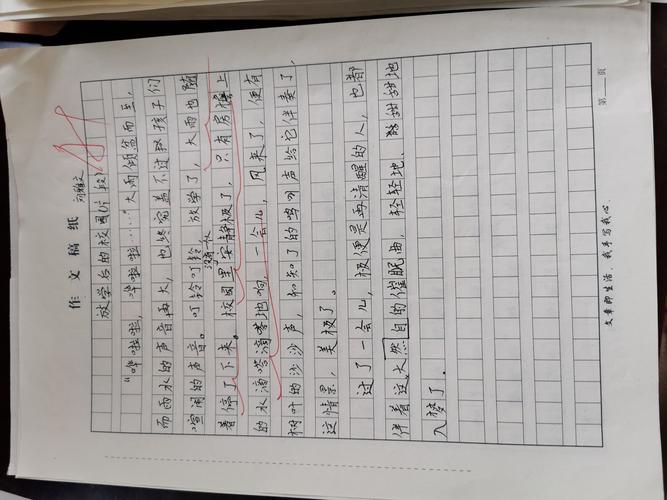 作文稿纸
放学后的校园片段
"哗啦啦，哗啦啦……"大雨倾盆而至，
而雨水的声音再大，也终究盖不过孩子们
喧闹的声音。叮铃叮铃，放学了，大雨也随
着停了下来。校园里安静极了，只有房檐上
的水滴嗒滴嗒地响，一会儿，风来了，便有
树叶的沙沙声，和知了的鸣叫声给它伴奏了，
这情景，美极了。
过了一会儿，极便是再清醒的人，也都
伴着这大然自的催眠曲，轻轻地、甜甜地
入梦了。
文章即生活，我手写我心。
第 页